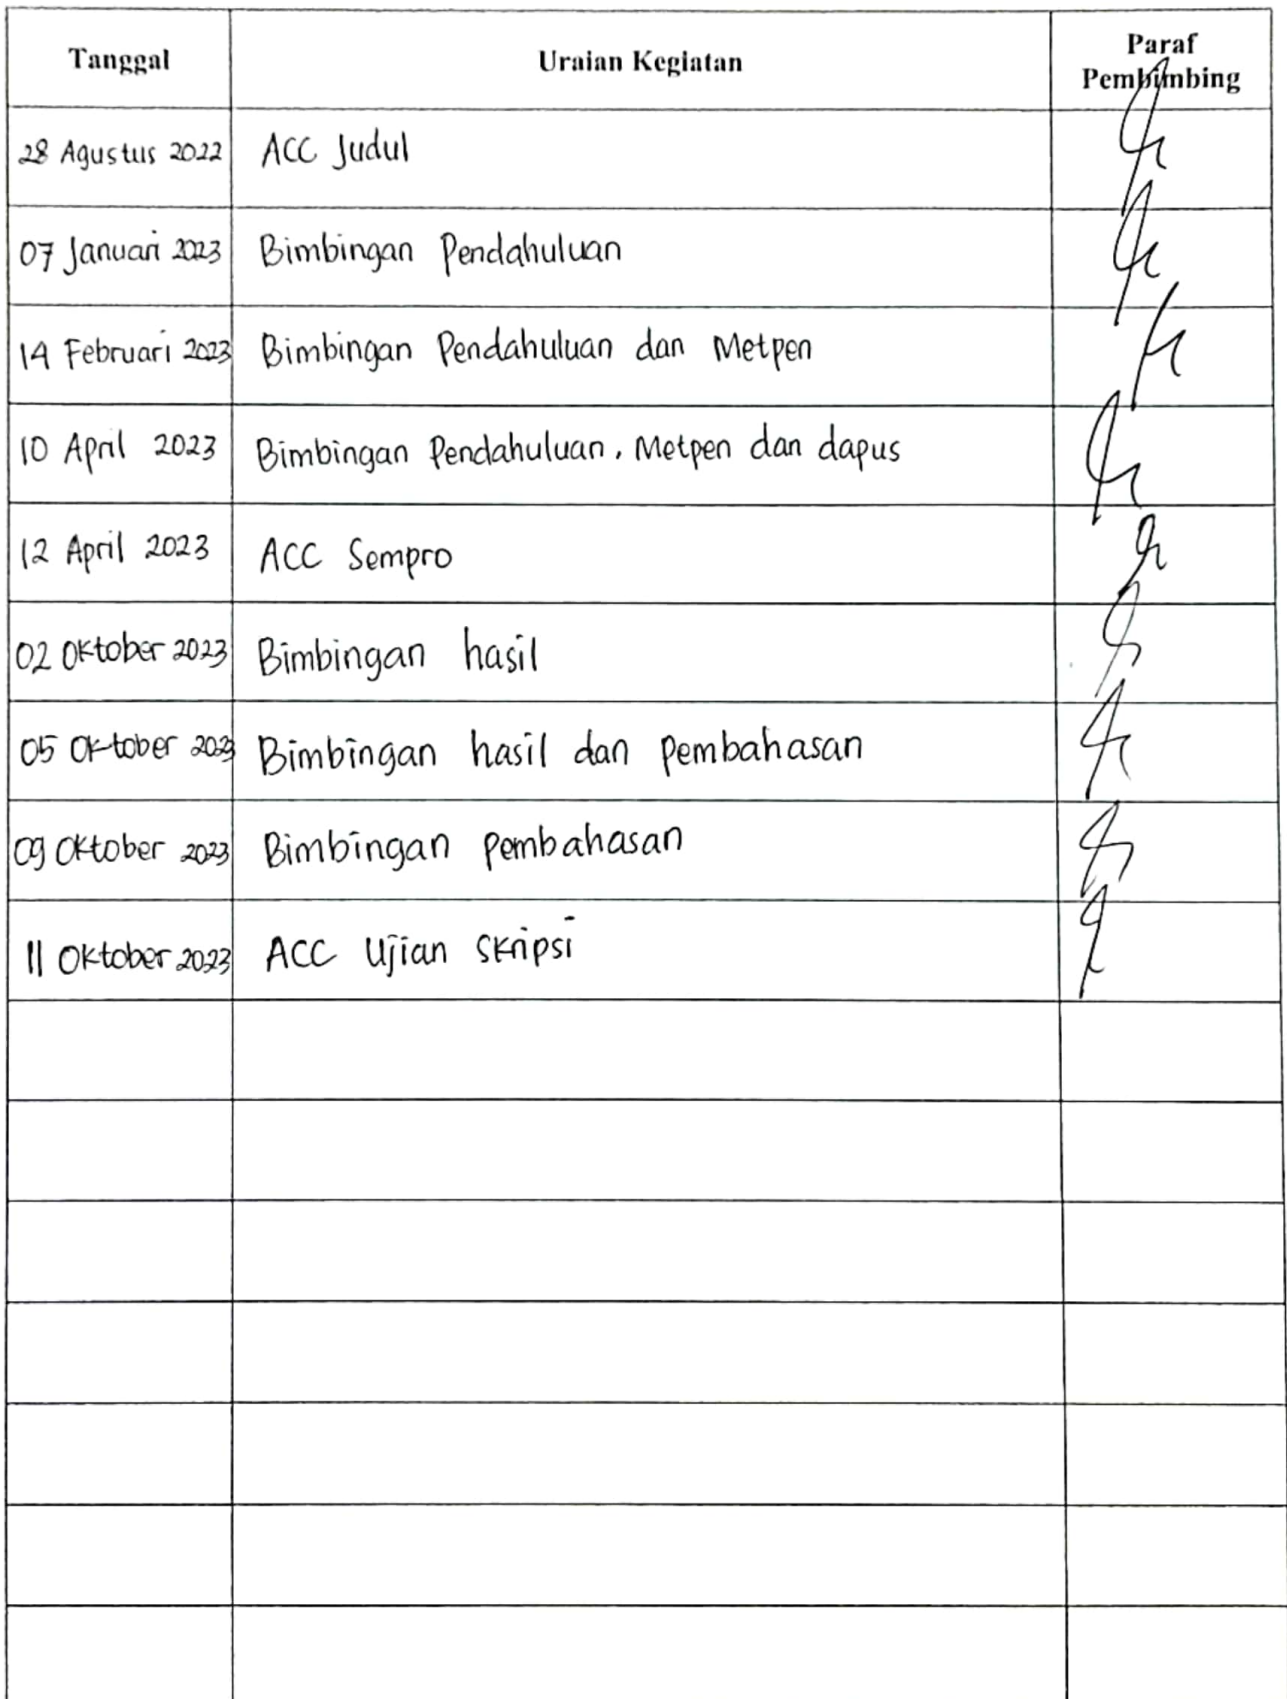 Tanggal Uraian Kegiatan Paraf Pembimbing
28 Agustus 2022 ACC Judul
07 Januari 2023 Bimbingan Pendahuluan
14 Februari 2023 Bimbingan Pendahuluan dan Metpen
10 April 2023 Bimbingan Pendahuluan, Metpen dan dapus
12 April 2023 ACC Sempro
02 Oktober 2023 Bimbingan hasil
05 Oktober 2023 Bimbingan hasil dan pembahasan
09 Oktober 2023 Bimbingan pembahasan
11 Oktober 2023 ACC Ujian Skripsi